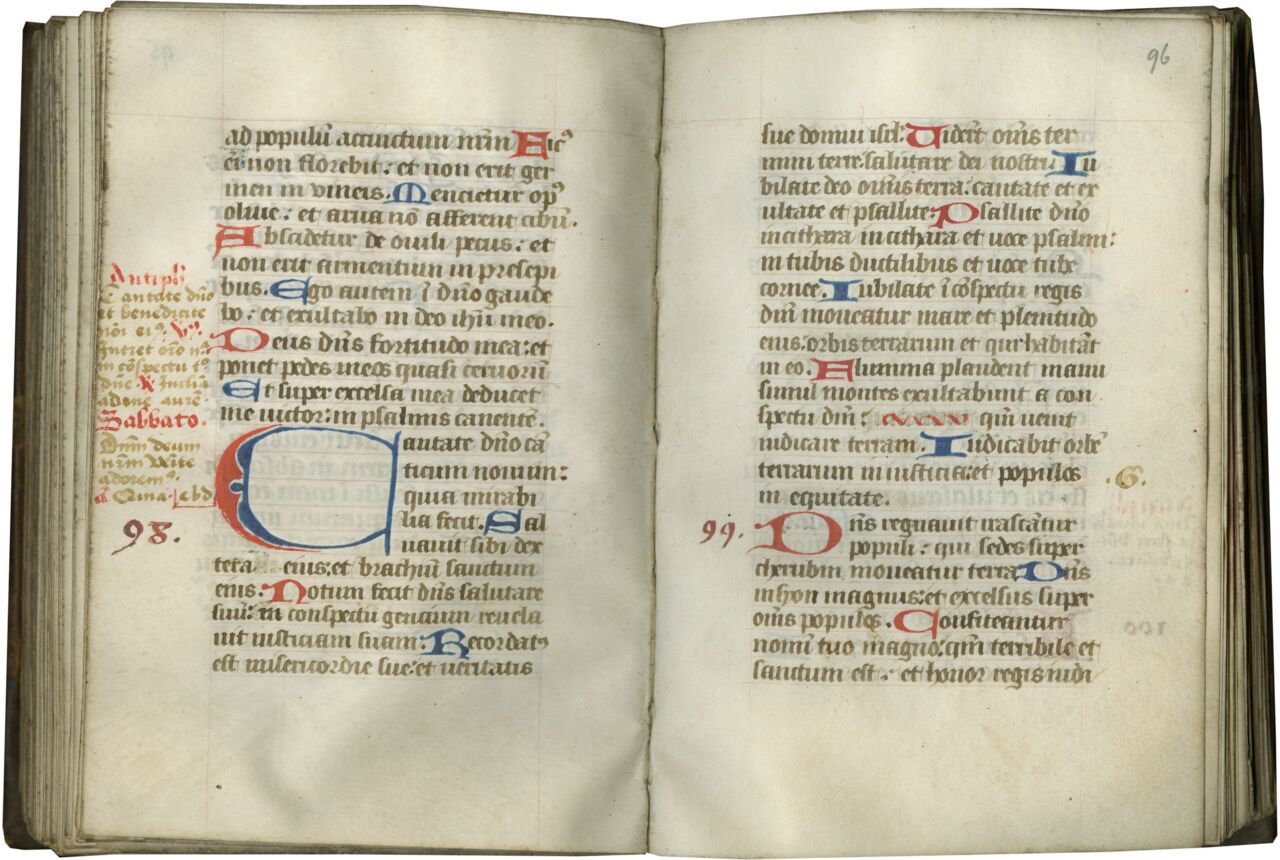 ad populū accinctum nr̄m Ficꝰ
ei non florebit. et non erit ger
men in vineis. Mencietur opꝰ
oliue: et arua nō afferent cibū.
Abscidetur de ouili pecus: et
non erit armentum in presepi
bus. Ego autem ī dn̄o gaude
bo: et exultabo in deo ihū meo.
Deus dn̄s fortitudo mea: et
ponet pedes meos quasi ceruorū
Et super excelsa mea deducet
me victor: in psalmis canentē.
Antiph
Cantate dn̄o
et benedicite
nōi eiꝰ. V.
Intret orō
in cōspectu
dn̄e R Inclia
Sabbato.
Dnm deum
nr̄m venite
adoremꝰ.
98.
Cantate dn̄o cā
ticum nouum:
quia mirabi
lia fecit. Sal
uauit sibi dex
tera eius: et brachiū sanctum
eius. Notum fecit dn̄s salutare
suū: in conspectu gencium reuela
uit iusticiam suam. Recordatꝰ
est misericordie sue: et ueritatis
96
sue domui isrl. Uider̄t om̄s ter
mini terre: salutare dei nostri Iu
bilate deo om̄is terra: cantate et ex
ultate et psallite: Psallite dn̄o
in cithara in cithara et uoce psalmi:
in tubis ductilibus et uoce tube
cornee. Iubilate ī cōspectu regis
dn̄i moueatur mare et plenitudo
eius: orbis terrarum et qui habitāt
in eo. Flumina plaudent manu
simul montes exultabunt a con
spectu dn̄i: qm̄ uenit
iudicare terram. Iudicabit orbē
terrarum in iusticia: et populos
in equitate.
.G.
99.
Dn̄s regnauit irascātur
populi: qui sedes super
cherubin moueatur terra Dn̄s
in syon magnus: et excelsus super
om̄s populos. Confiteantur
nomī tuo magno: qm̄ terribile et
sanctum est. et honor regis iudi